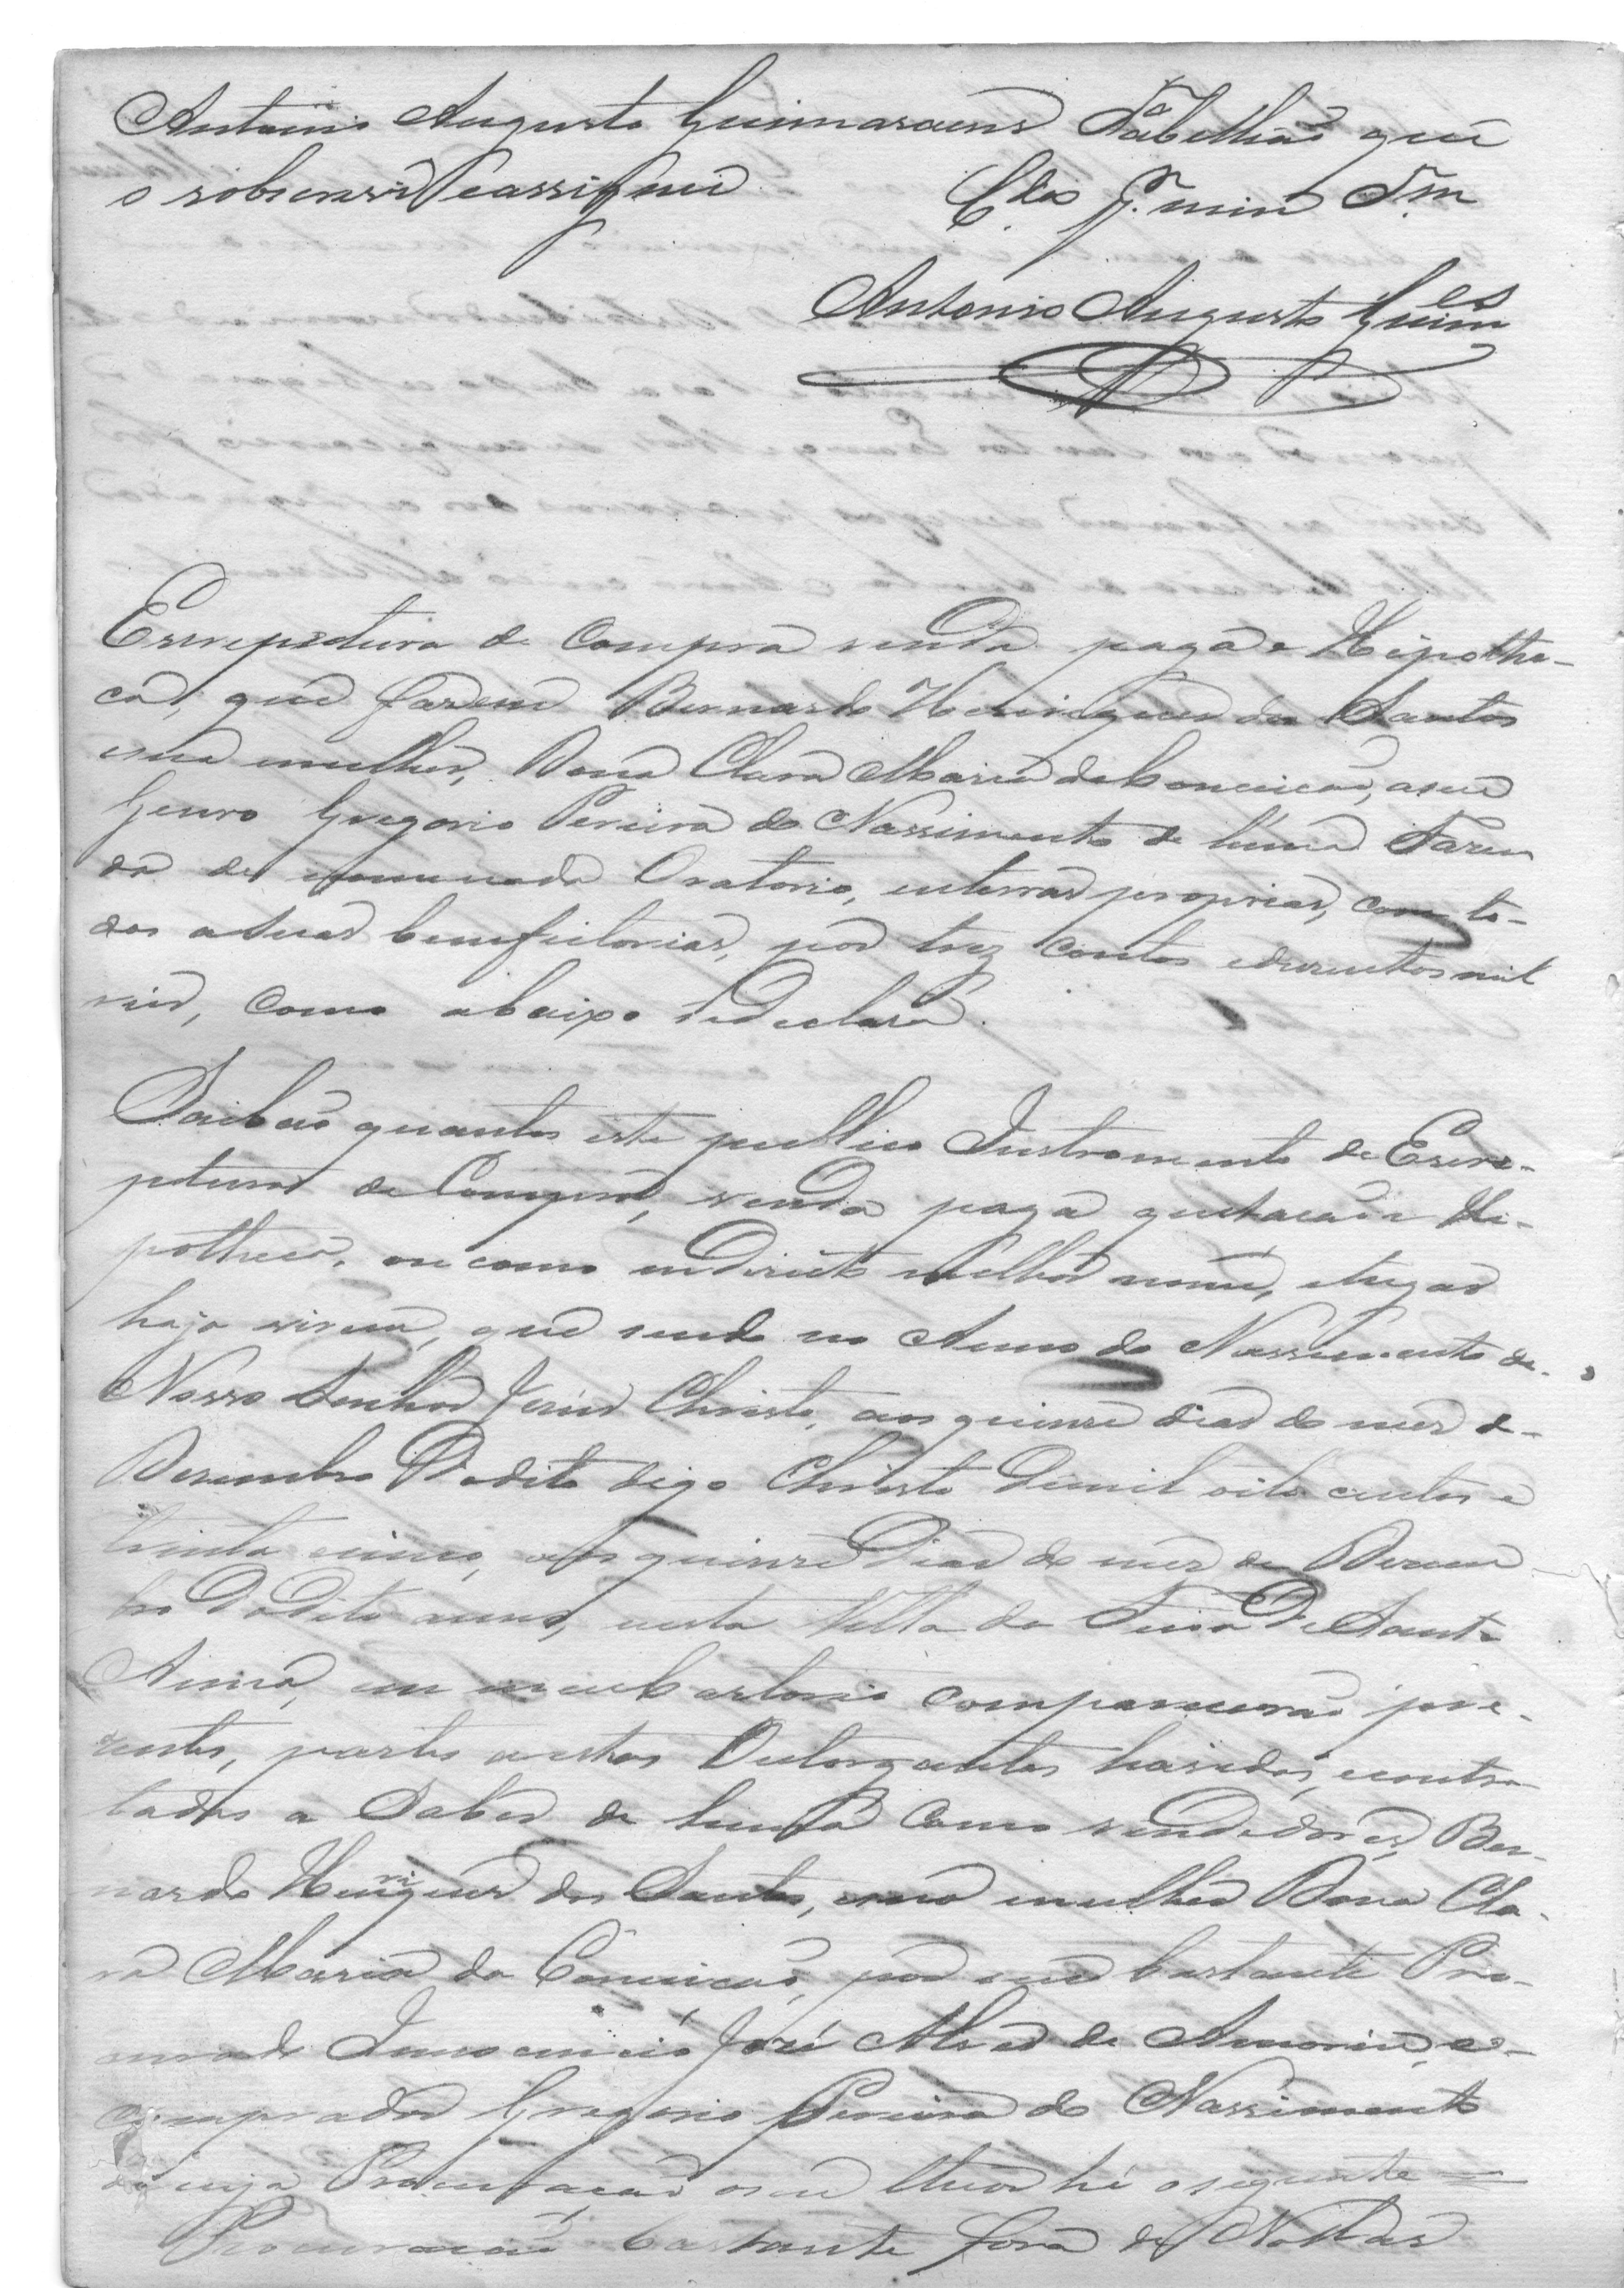 Antonio Augusto Guimaraens Tabellião que
o sobscrevi e assignei
Antonio Augusto Guim.es
Escrepetura de Compra venda paga e Hipothe-
ca, que fazem Bernardo Henriques dos Santos
esua mulher, Dona Clara Maria da Conceição, aseu
Genro Gregorio Pereira do Nassimento de huma Fazen
da denominada Oratorio, enterras proprias, com to-
das asuas bemfeitorias, por trez contos eduzentos mil
reis, como abaixo sedeclara.
Saibão quantos este publico Instromento de Escre-
petura de Compra, venda paga quitacão e Hi-
potheca, ou como endireito melhor nome, elugar
haja virem, que sendo no Anno do Nassimento de
Nosso Senhor Jesus Christo, aos quinze dias do mes de
Dezembro Dodito digo Christo demil oito centos e
trinta cinco, aos quinze Dias do mes de Dezem
bro Dodito anno, nesta Villa da Feira De Santa
Anna, em meu Cartorio comparecerão pre-
zentes, partes aestas Outorgantes havidos, econtra-
tados a Saber de huma como vendedores, Ber-
nardo Henriques dos Santos, esua mulher Dona Cla-
ra Maria da Conceicão, por seu bastante Pro-
curador Innocencio José Alves de Amorim, eo
comprador Gregorio Pereira do Nassimento
da cuja Procuracão oseu theor hé oseguinte =
Procuracão bastante fora de Nottas